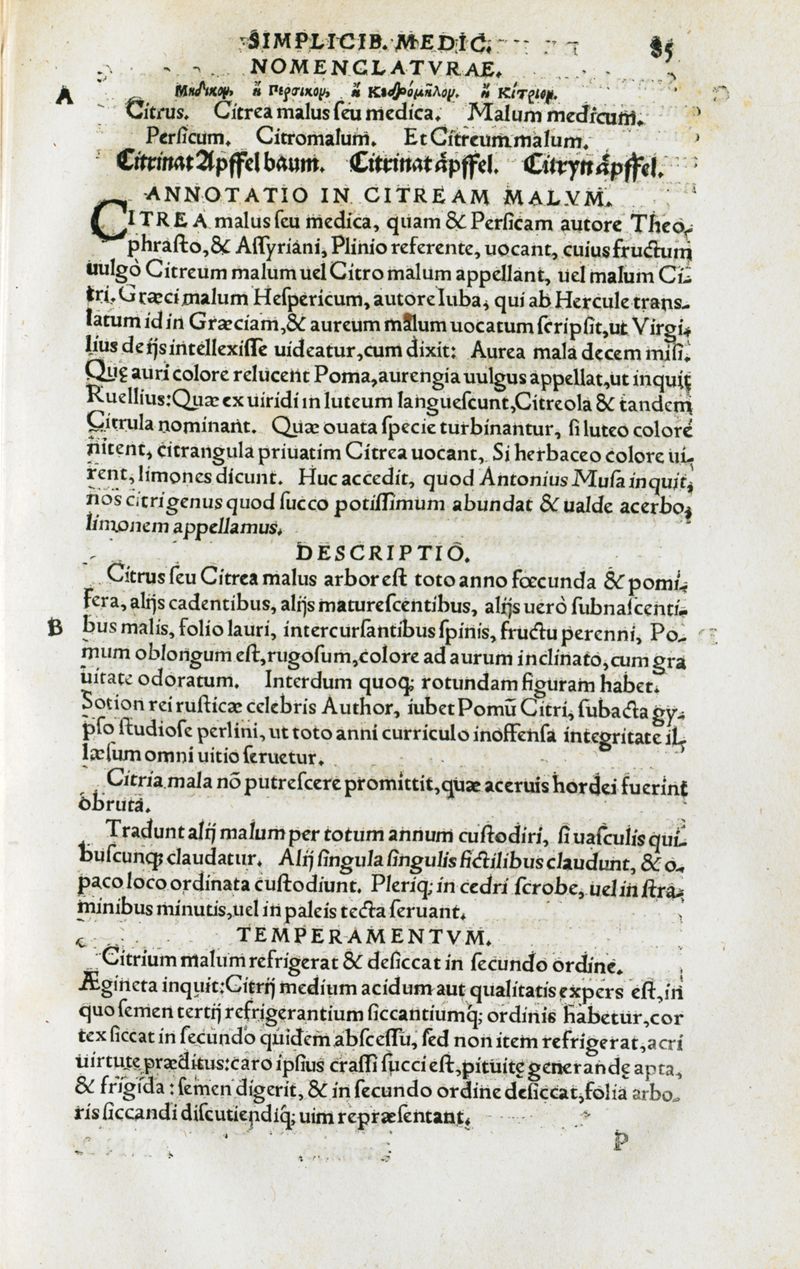 SIMPLICIB. MEDIC. 85
NOMENCLATVRAE.
A
Μηδικον, ἢ Περσικον, ἢ Κεδρόμηλον. ἢ Κίτριον.
Citrus. Citrea malus seu medica. Malum medicum.
Persicum. Citromalum. Et Citreum malum.
Citrinat Apffel baum. Citrinat ápffel. Citryn ápffel.
ANNOTATIO IN CITREAM MALVM.
CITREA malus seu medica, quam & Persicam autore Theo-
phrasto, & Assyriani, Plinio referente, uocant, cuius fructum
uulgò Citreum malum uel Citro malum appellant, uel malum Ci-
tri. Græci malum Hespericum, autore Iuba, qui ab Hercule trans-
latum id in Græciam, & aureum malum uocatum scripsit, ut Virgi-
lius de ijs intellexisse uideatur, cum dixit: Aurea mala decem misi.
Quę auri colore relucent Poma, aurengia uulgus appellat, ut inquit
Ruellius: Quæ ex uiridi in luteum languescunt, Citreola & tandem
Citrula nominant. Quæ ouata specie turbinantur, si luteo colore
nitent, citrangula priuatim Citrea uocant, Si herbaceo colore ui-
rent, limones dicunt. Huc accedit, quod Antonius Musa inquit,
nos citri genus quod succo potissimum abundat & ualde acerbo,
limonem appellamus.
DESCRIPTIO.
Citrus seu Citrea malus arbor est toto anno fœcunda & pomi-
fera, alijs cadentibus, alijs maturescentibus, alijs uerò subnascenti-
B bus malis, folio lauri, intercursantibus spinis, fructu perenni, Po-
mum oblongum est, rugosum, colore ad aurum inclinato, cum gra
uitate odoratum. Interdum quoq; rotundam figuram habet.
Sotion rei rusticæ celebris Author, iubet Pomũ Citri, subacta gy-
pso studiose perlini, ut toto anni curriculo inoffensa integritate il-
læsum omni uitio seruetur.
Citria mala nõ putrescere promittit, quæ aceruis hordei fuerint
obruta.
Tradunt alij malum per totum annum custodiri, si uasculis qui-
buscunq; claudatur. Alij singula singulis fictilibus claudunt, & o-
paco loco ordinata custodiunt. Pleriq; in cedri scrobe, uel in stra-
minibus minutis, uel in paleis tecta seruant.
TEMPERAMENTVM.
Citrium malum refrigerat & desiccat in secundo ordine.
Ægineta inquit: Citrij medium acidum aut qualitatis expers est, in
quo semen tertij refrigerantium siccantiumq; ordinis habetur, cor
tex siccat in secundo quidem abscessu, sed non item refrigerat, acri
uirtute præditus: caro ipsius crassi succi est, pituitę generandę apta,
& frigida: semen digerit, & in secundo ordine desiccat, folia arbo-
ris siccandi discutiendiq; uim repræsentant.
P